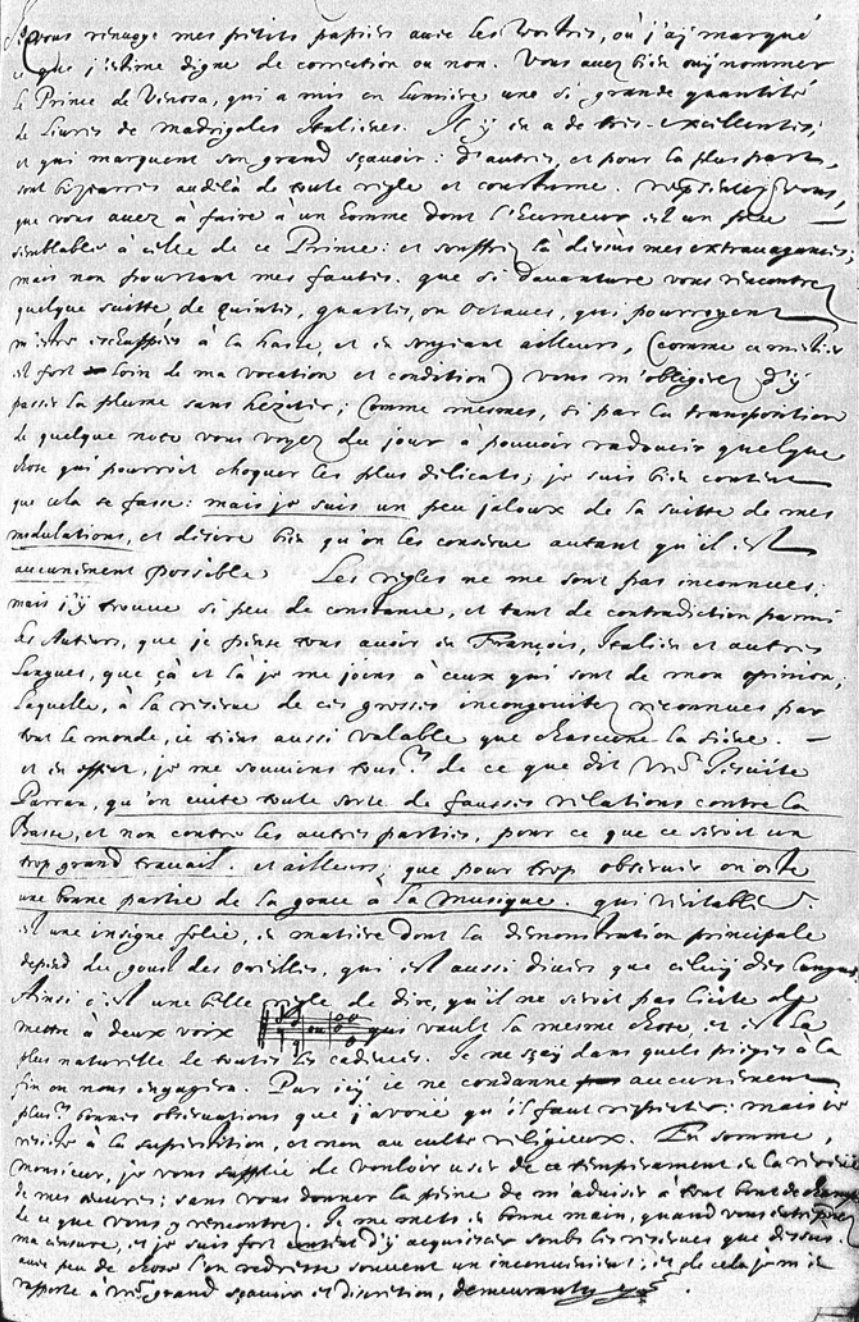 vous renvoye mes petits papiers avec les vostres, où j'aij marqué
ce que j'estime digne de correction ou non. Vous avez bien ouij nommer
le Prince de Venosa, qui a mis en lumiere une si grande quantité
de Livres de Madrigales Italienes. Il ij en a de tres-excellentes,
et qui marquent son grand sçavoir: d'autres, et pour la plus part,
sont bizarres au delà de toute regle et coustume. vous,
que vous avez à faire à un homme dont l'humeur est un peu
semblable à celle de ce Prince: et souffrez là dessus mes extravagances;
mais non pourtant mes fautes. que si d'avanture vous rencontrez
quelque suitte de quintes, quartes, ou Octaves, qui pourroyent
m'estre eschappées à la haste, et en songeant ailleurs, (comme ce mestier
est fort loin de ma vocation et condition) vous m'obligerez d'ij
passer la plume sans heziter; Comme mesmes, si par la transposition
de quelque note vous voyez du jour à pouvoir radoucir quelque
chose qui pourroit choquer les plus delicats; je suis bien content
que cela se fasse: mais je suis un peu jaloux de la suitte de mes
modulations, et desire bien qu'on les conserve autant qu'il est
aucunement possible. Les regles ne me sont pas inconnues;
mais j'ij trouve si peu de constance, et tant de contradiction parmi
les Auteurs, que je pense tous avoir en François, Italien et autres
Langues, que çà et là je me joins à ceux qui sont de mon opinion;
Laquelle, à la reserve de ces grosses incongruitez reconnues par
tout le monde, ie tiens aussi valable que chascune la siene.
et en effect, je me souviens tous.rs de ce que dit vre Jesuite
Parran, qu'on evite toute sorte de fausses relations contre la
Basse, et non contre les autres parties, pour ce que ce seroit un
trop grand travail. et ailleurs; que pour trop observer on oste
une bonne partie de la grace à la Musique. qui veritablemt
est une insigne folie, en matiere dont la demonstration principale
depend du goust des oreilles, qui est aussi divers que celuij des langues.
Ainsi c'est une belle regle de dire, qu'il ne seroit pas licite de
mettre à deux voix ou qui vault la mesme chose, et est la
plus naturelle de toutes les cadences. Je ne sçaij dans quels pieges à la
fin on nous engagera. Par icij ie ne condamne aucunement
plus.rs bonnes observations que j'avoue qu'il faut respecter: mais ie
resiste à la superstition, et non au culte religieux. En somme,
Monsieur, je vous supplie de vouloir user de ce temperament en la reveue
de mes œuvres; sans vous donner la peine de m'adviser à tout bout de champ
de ce que vous ij rencontrez. Je me mets en bonne main, quand vous
ma censure, et je suis fort content d'ij acquiescer soubs les reserves que dessus.
avec peu de chose l'on redresse souvent un inconvenient; et de cela je m'en
rapporte à vre grand sçavoir et discretion, demeurant